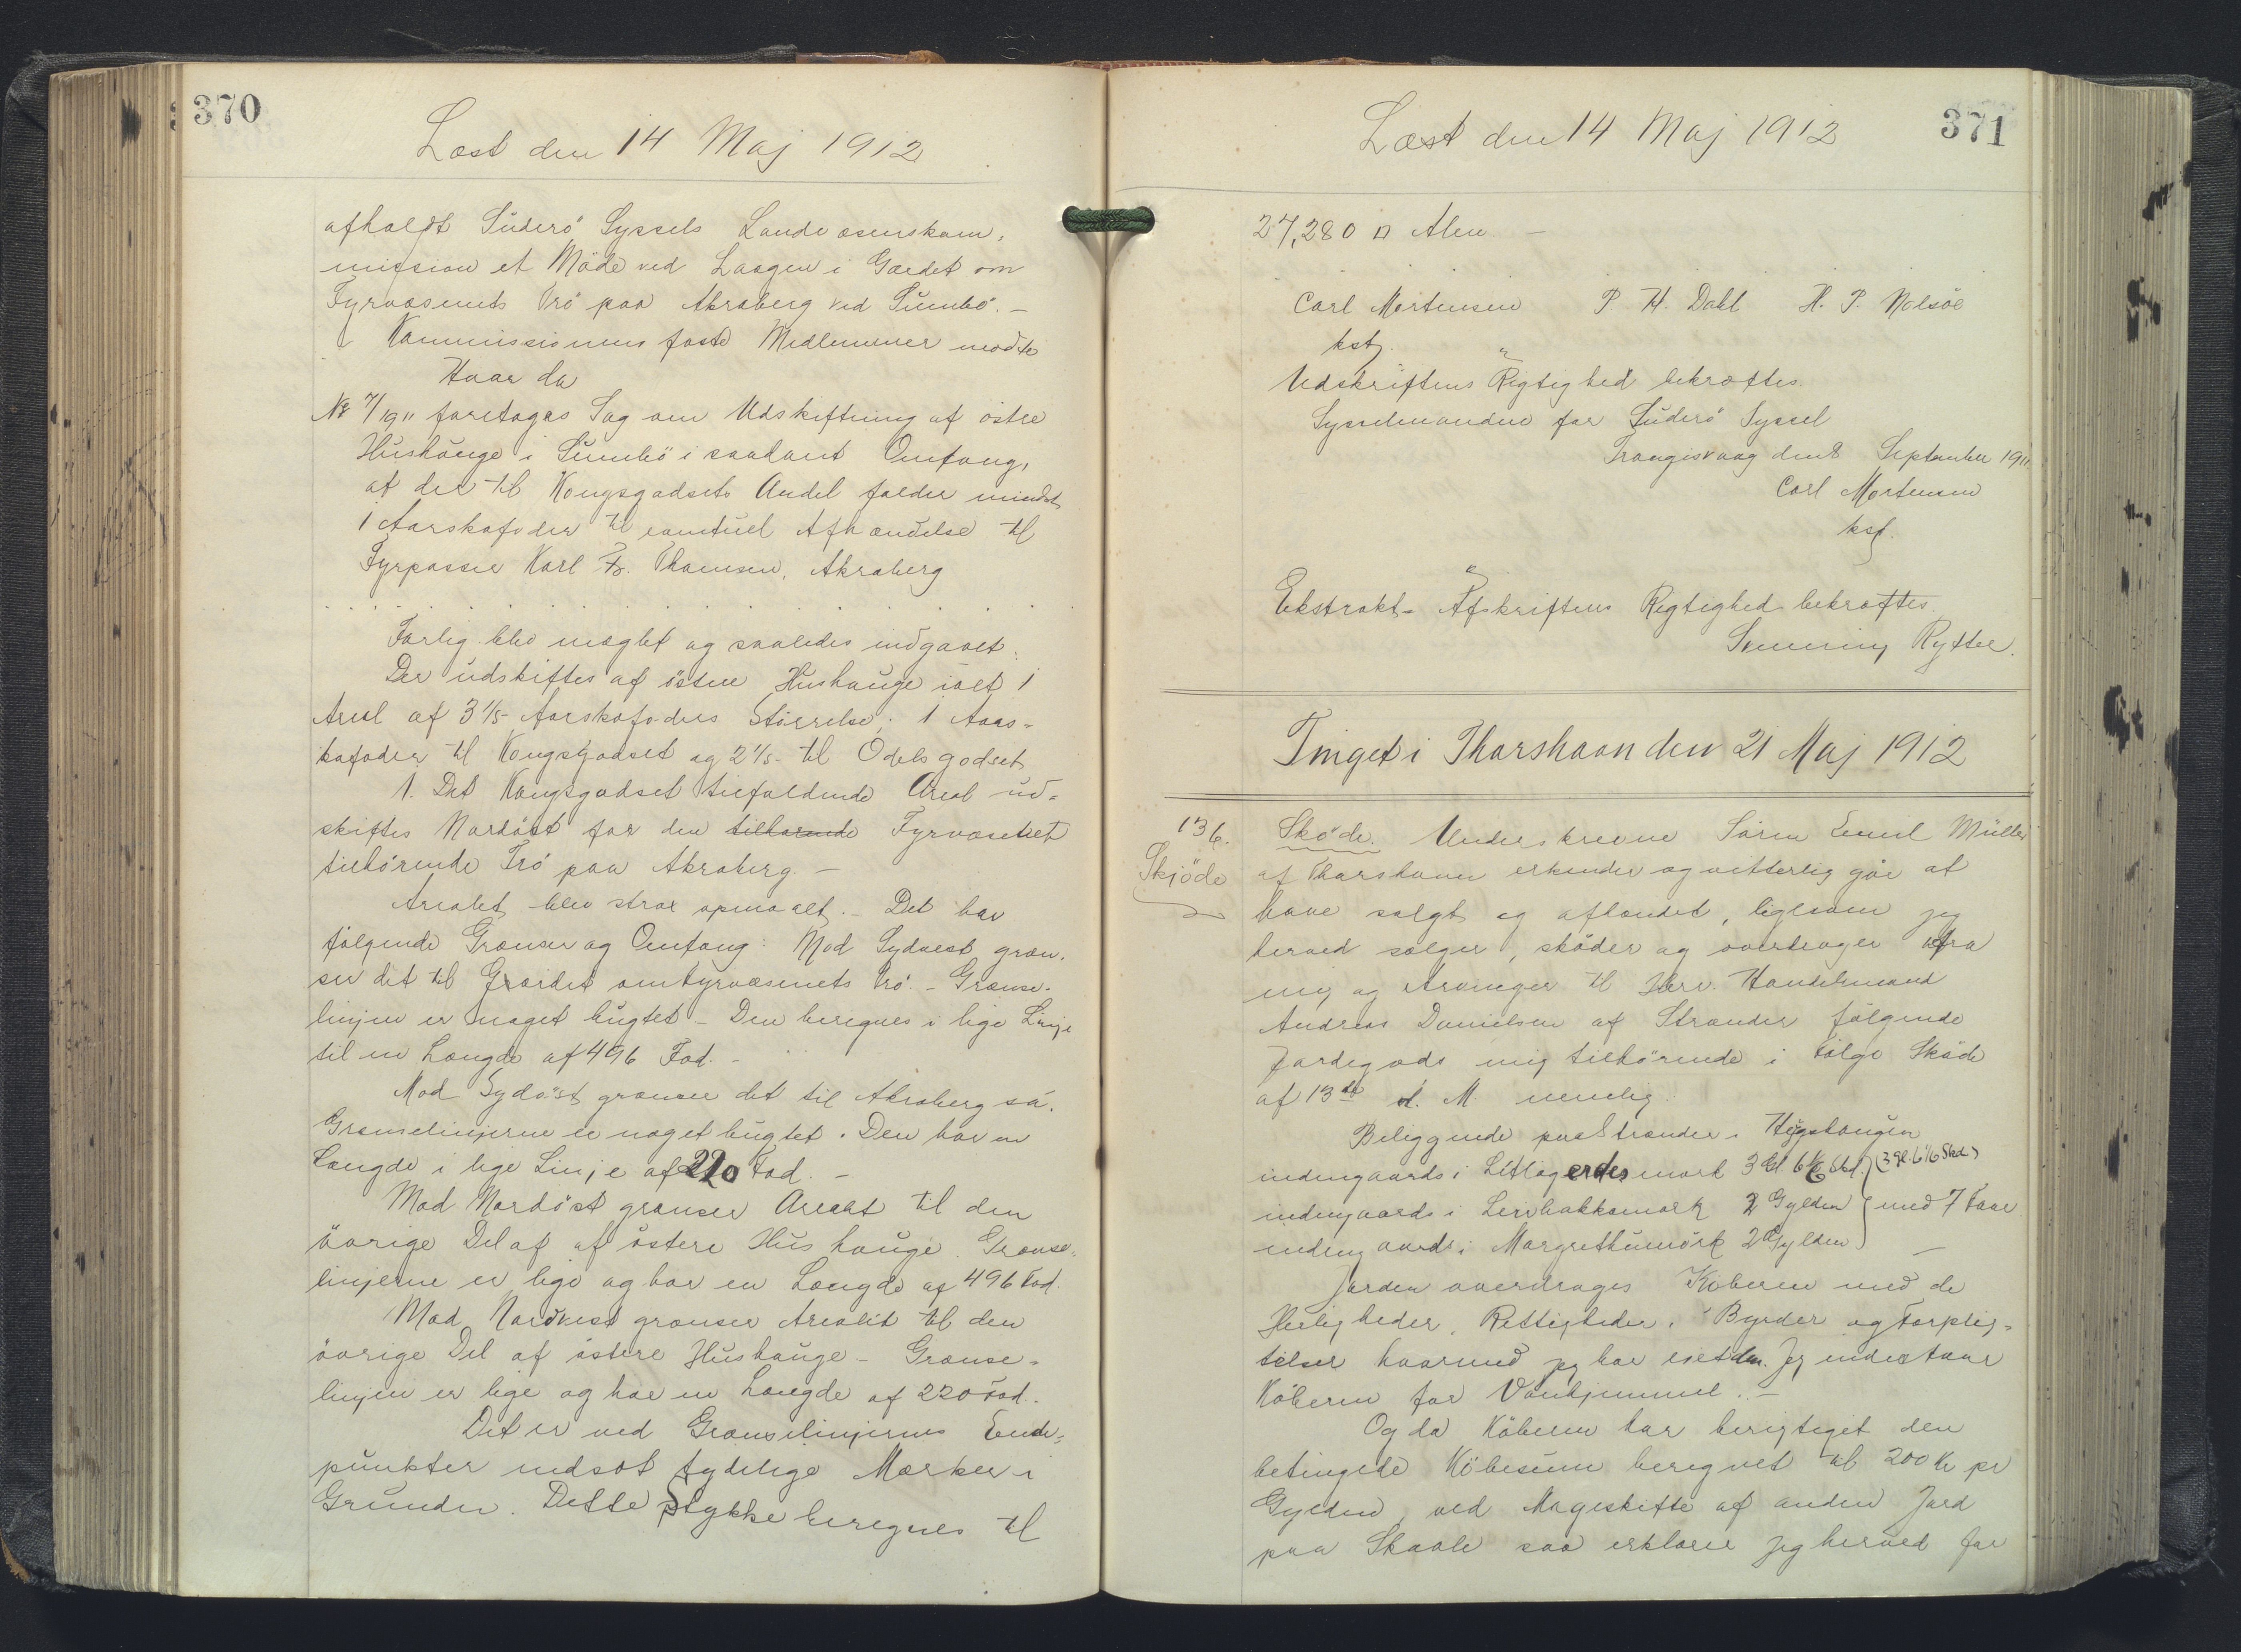 370
Læst den 14 Maj 1912
afholdt Süderö Syssels Landvæsenskom-
mission et Möde ved Laagen i Gærdet om
Fyrvæsenets Trö paa Akraberg ved Sumbö. –
Kommissionens faste Medlemmer mødte
Hvor da
№ 7/1911 foretoges Sag om Udskiftning af östre
Hushauge i Sumbö i saadant Omfang,
at der til Kongsgodsets Andel falder mindst
1 Aarskofoder til eventuel Afhændelse til
Fyrpasser Karl Fr. Thomsen, Akraberg
Forlig blev mæglet og saaledes indgaaet:
Der udskiftes af östre Hushauge ialt 1
Areal af 3 1/5 Aarskofoders Störrelse; 1 Aars-
kofoder til Kongsgodset og 2 1/5 til Odelsgodset
1. Det Kongsgodset tilfaldende Areal ud-
skiftes Nordöst for den tilhørende Fyrvæsenet
tilhörende Trö paa Akraberg. –
Arealet blev strax opmaalt. – Det har
følgende Grænser og Omfang: Mod Sydvest græn-
ser det til Gærdet om Fyrvæsenets Trö. – Grænse-
linjen er noget bugtet – Den beregnes i lige Linje
til en Længde af 496 Fod. –
Mod Sydöst grænser det til Akraberg sá.
Grænselinjerne er noget bugtet. Den har en
Længde i lige Linje af 220 Fod. –
Mod Nordöst grænser Arealet til den
övrige Del af af östere Hus hauge. Grænse-
linjerne er lige og har en Længde af 496 Fod.
Mod Nordvest grænser Arealet til den
övrige Del af östere Hushauge – Grænse-
linjen er lige og har en Længde af 220 Fod. –
Det er ved Grænselinjernes Ende-
punkter nedsat tydelige Mærker i
Grunden. Dette Stykke beregnes til
371
Læst den 14 Maj 1912
27,280 □ Alen –
Carl Mortensen P. H. Dahl H. P. Nolsöe
kst.
Udskriftens Rigtighed bekræftes.
Sysselmanden for Süderö Syssel
Trangisvaag den 8 September 1911
Carl Mortensen
kst.
Ekstrakt-Afskriftens Rigtighed bekræftes.
Svenning Rytter.
Tinget i Thorshavn den 21 Maj 1912
136.
Skjöde
Sköde. Underskrevne Sören Emil Müller
af Thorshavn erkender og vitterlig gör at
have solgt og afhændet, ligesom jeg
herved sælger, sköder og overdrager fra
mig og Arvinger til Herr. Handelsmand
Andreas Danielsen af Strænder følgende
Jordegods mig tilhörende i Fölge Sköde
af 13de d. M. nemlig.
Beliggende paa Strænder i Høgshaugen
indengaards i Litlagerdesmork 3 Gl. 6 1/6 Skd. (3 gl. 6 1/6 Skd)
indengaards i Leirbakkamork 2 Gylden } med 7 Faar
indengaards i Margrethumörk 2 Gylden –
Jorden overdrages Köberen med de
Herligheder, Rettigheder, Byrder og Forplig-
telser hvormed jeg har eiet den. Jeg indestaar
Köberen for Vanhjemmel. –
Og da Köberen har berigtiget den
betingede Köbesum beregnet til 200 Kr pr
Gylden, ved Mageskifte af anden Jord
paa Skaale saa erklærer jeg herved for